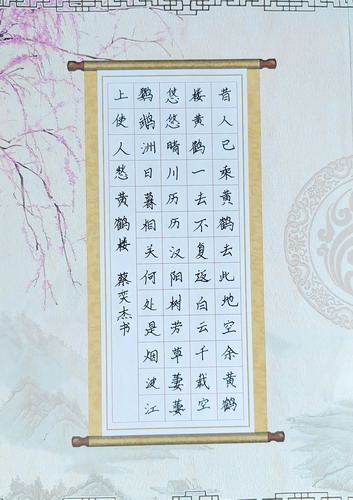 昔人已乘黄鹤去此地空余黄鹤
楼黄鹤一去不复返白云千载空
悠悠晴川历历汉阳树芳草萋萋
鹦鹉洲日暮相关何处是烟波江
上使人愁黄鹤楼 蔡奕杰书